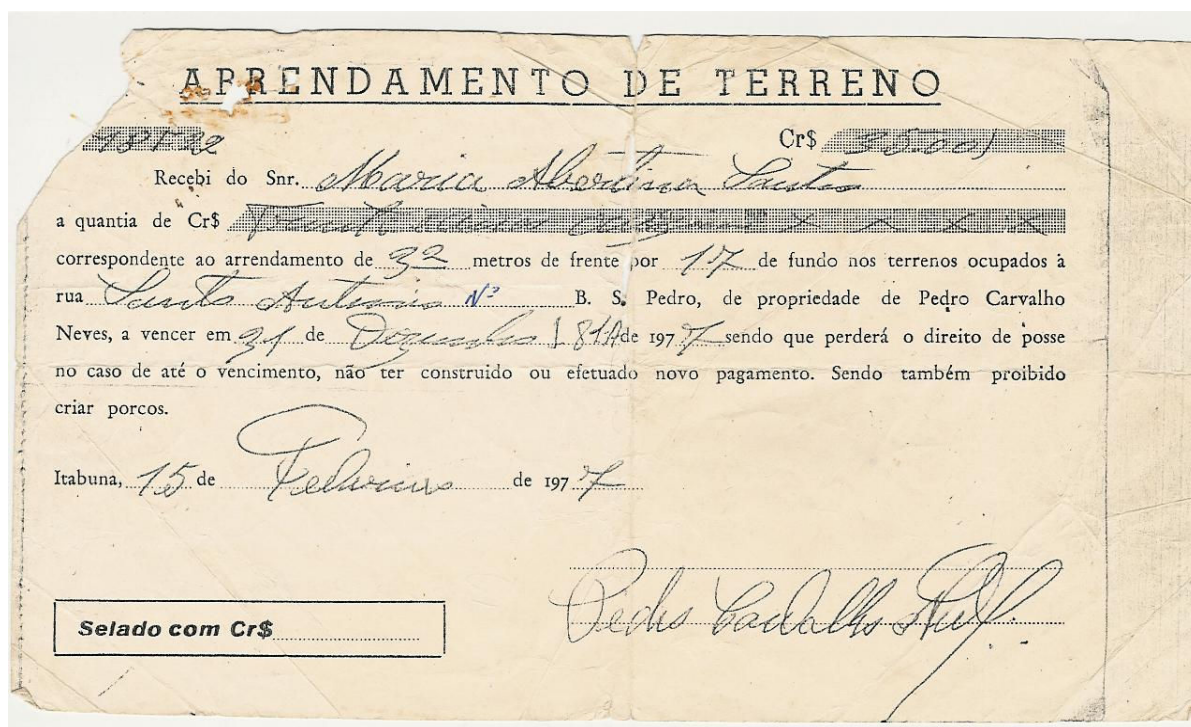 ARRENDAMENTO DE TERRENO
Cr$ 35.00
Recebi do Snr. Maria Abertina Santos
a quantia de Cr$ Trinta cinco X X X X
correspondente ao arrendamento de metros de frente por 17 de fundo nos terrenos ocupados à
rua Santo Antonio Nº B. S. Pedro, de propriedade de Pedro Carvalho
Neves, a vencer em 31 de Dezembro de 1977 sendo que perderá o direito de posse
no caso de até o vencimento, não ter construido ou efetuado novo pagamento. Sendo também proibido
criar porcos.
Itabuna, 15 de Fevereiro de 1977
Pedro Carvalho
Selado com Cr$